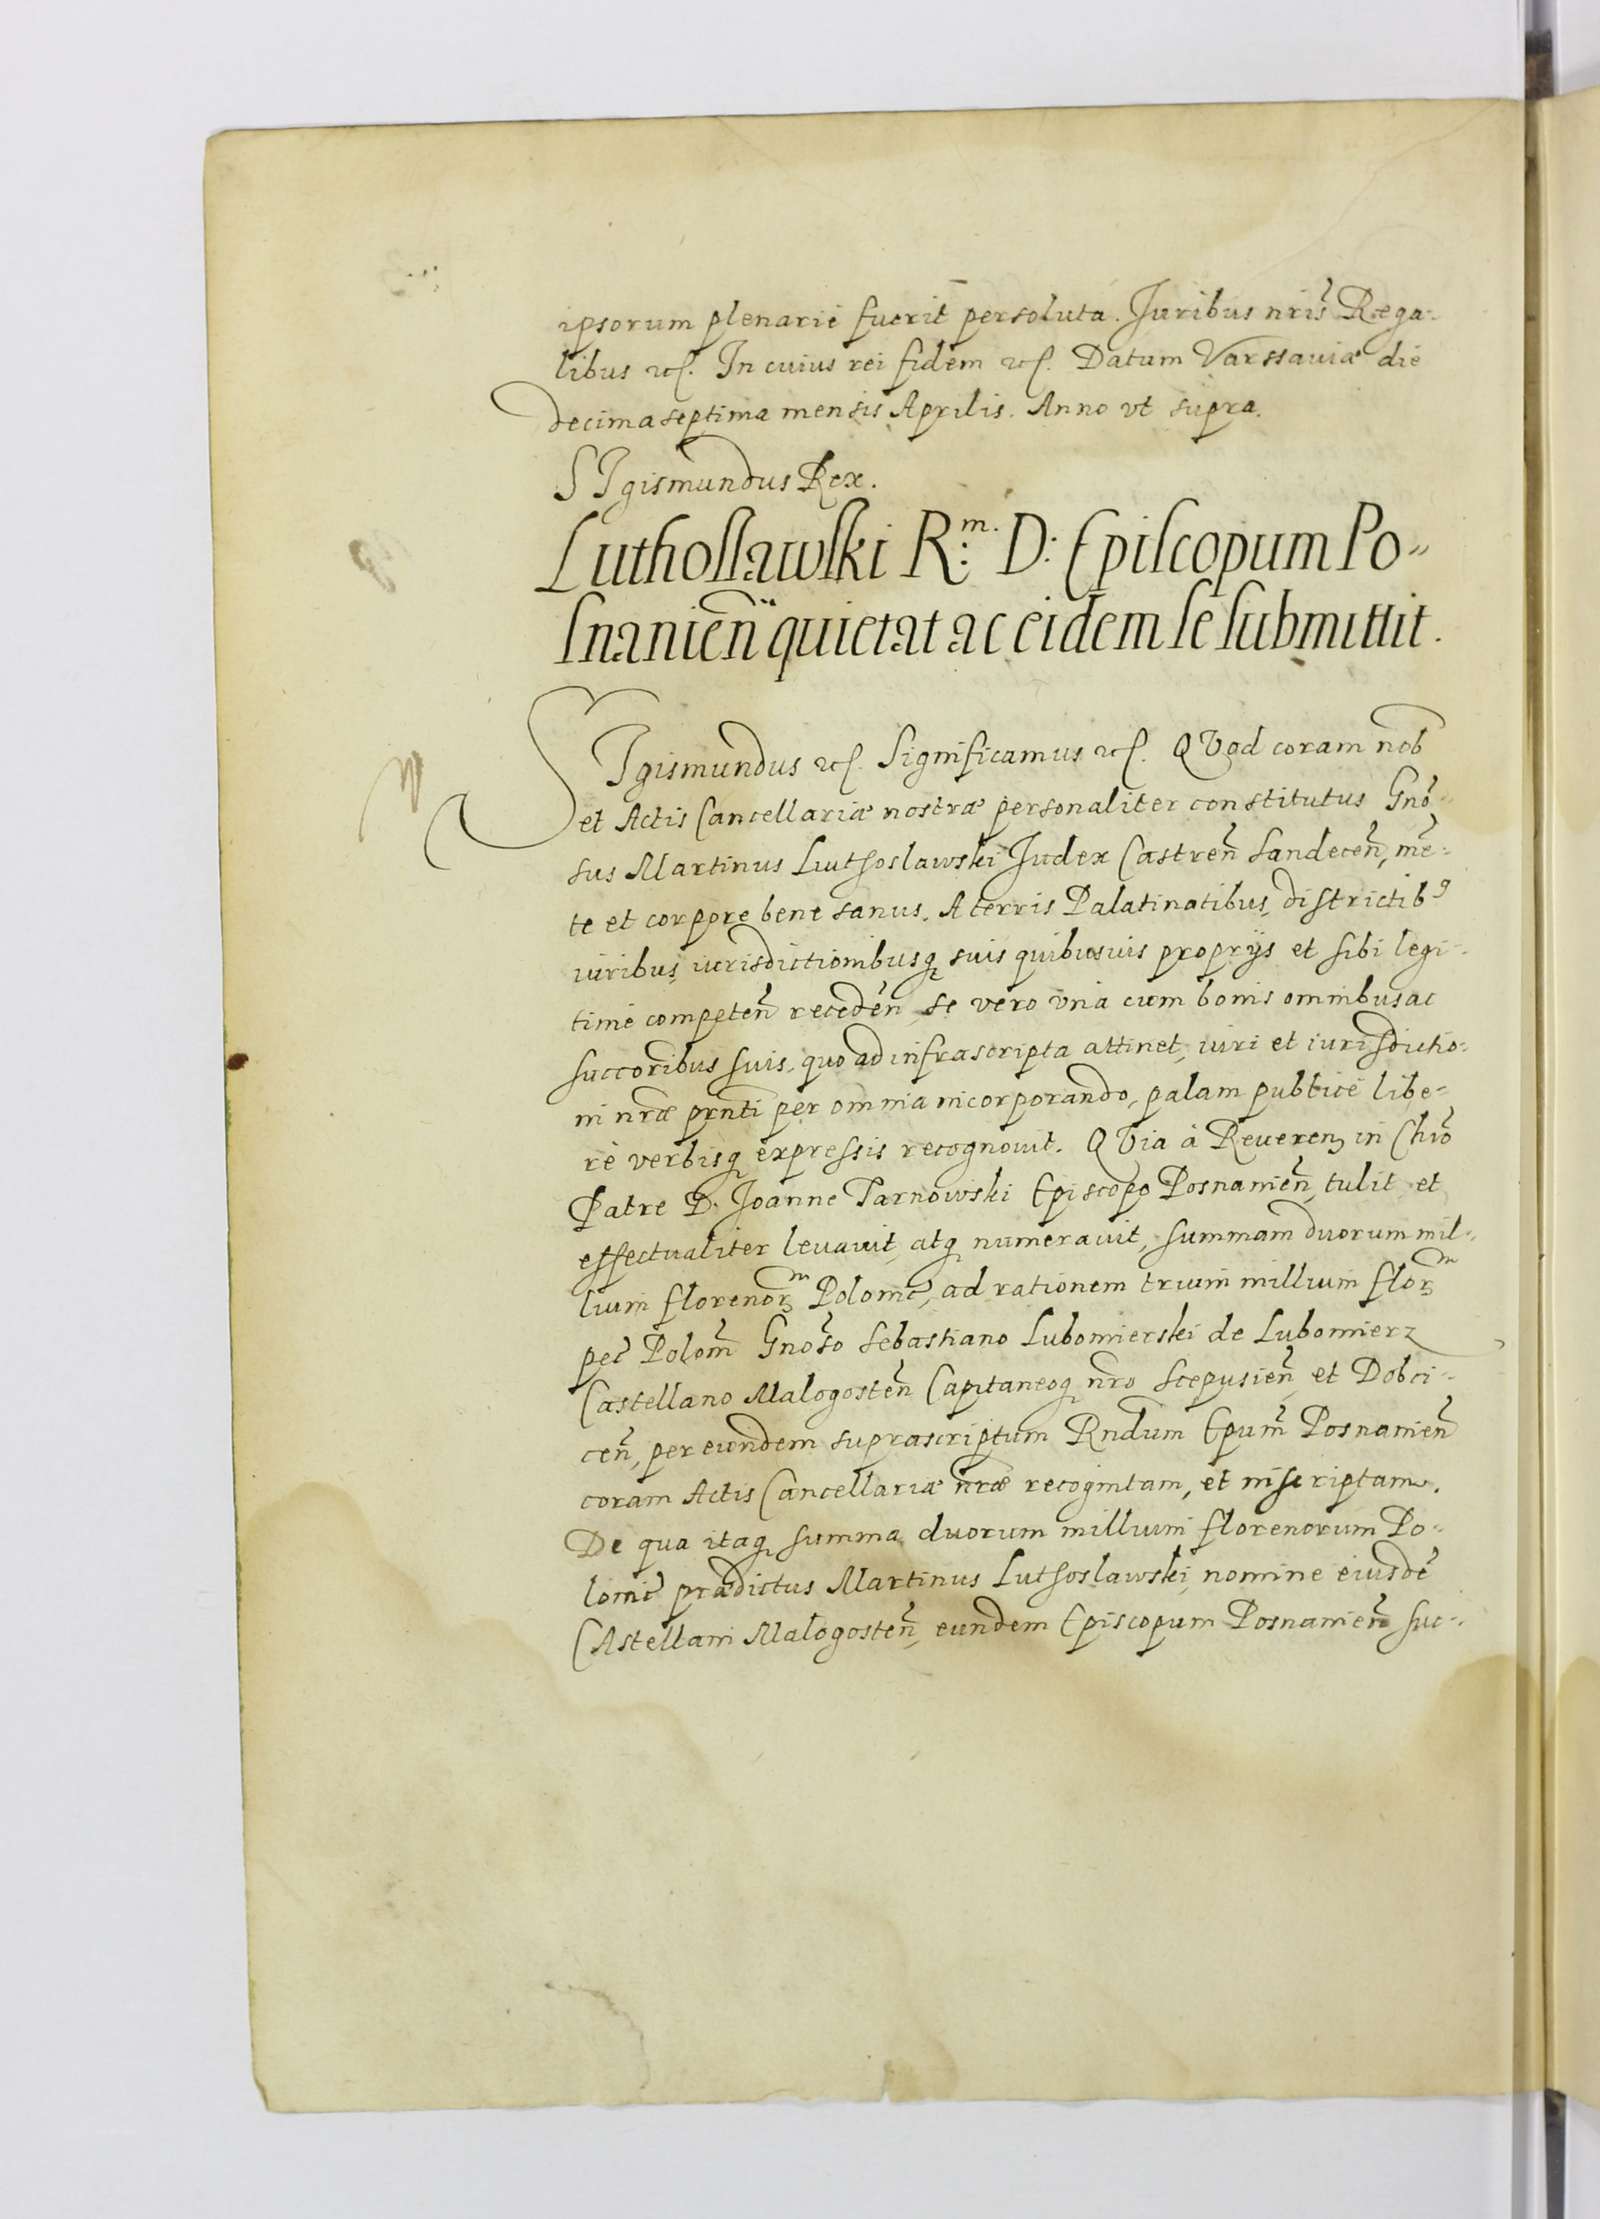 ipsorum plenarie fuerit persoluta. Juribus nris Rega-
libus etc. In cuius rei fidem etc. Datum Varssaviæ die
decima septima mensis Aprilis. Anno vt supra.
SIgismundus Rex.
Luthoslawski R.m D: Episcopum Po-
snanien quietat ac eidem se submittit.
SIgismundus etc. Significamus etc. QVod coram nob
et Actis Cancellariæ nostræ personaliter constitutus Gno-
sus Martinus Luthoslawski Judex Castren Sandecen, me-
te et corpore bene sanus. A terris Palatinatibus, districtib9
iuribus, iurisdictionibusq suis quibusuis proprijs et sibi legi-
time competen receden, se vero vna cum bonis omnibus ac
succoribus suis, quo ad infrascripta attinet, iuri et iurisdictio-
ni nræ prnti per omnia incorporando, palam publice libe-
re verbisq expressis recognouit. QVia à Reueren in Chro
Patre D. Joanne Tarnowski Episcopo Posnanien, tulit et
effectualiter leuauit, atq numerauit, summam duorum mil-
lium florenorm Polonic, ad rationem trium millium florm
pec Polon Gnoso Sebastiano Lubomierski de Lubomierz
Castellano Malogosten Capitaneoq nro Scepusien, et Dobci-
cen, per eundem suprascriptum Rndum Epum Posnanien
coram Actis Cancellariæ nræ recognitam, et inscriptam.
De qua itaq summa duorum millium florenorum Po-
lonic prædictus Martinus Luthoslawski, nomine eiusde
CAstellani Malogosten, eundem Episcopum Posnanien suc-